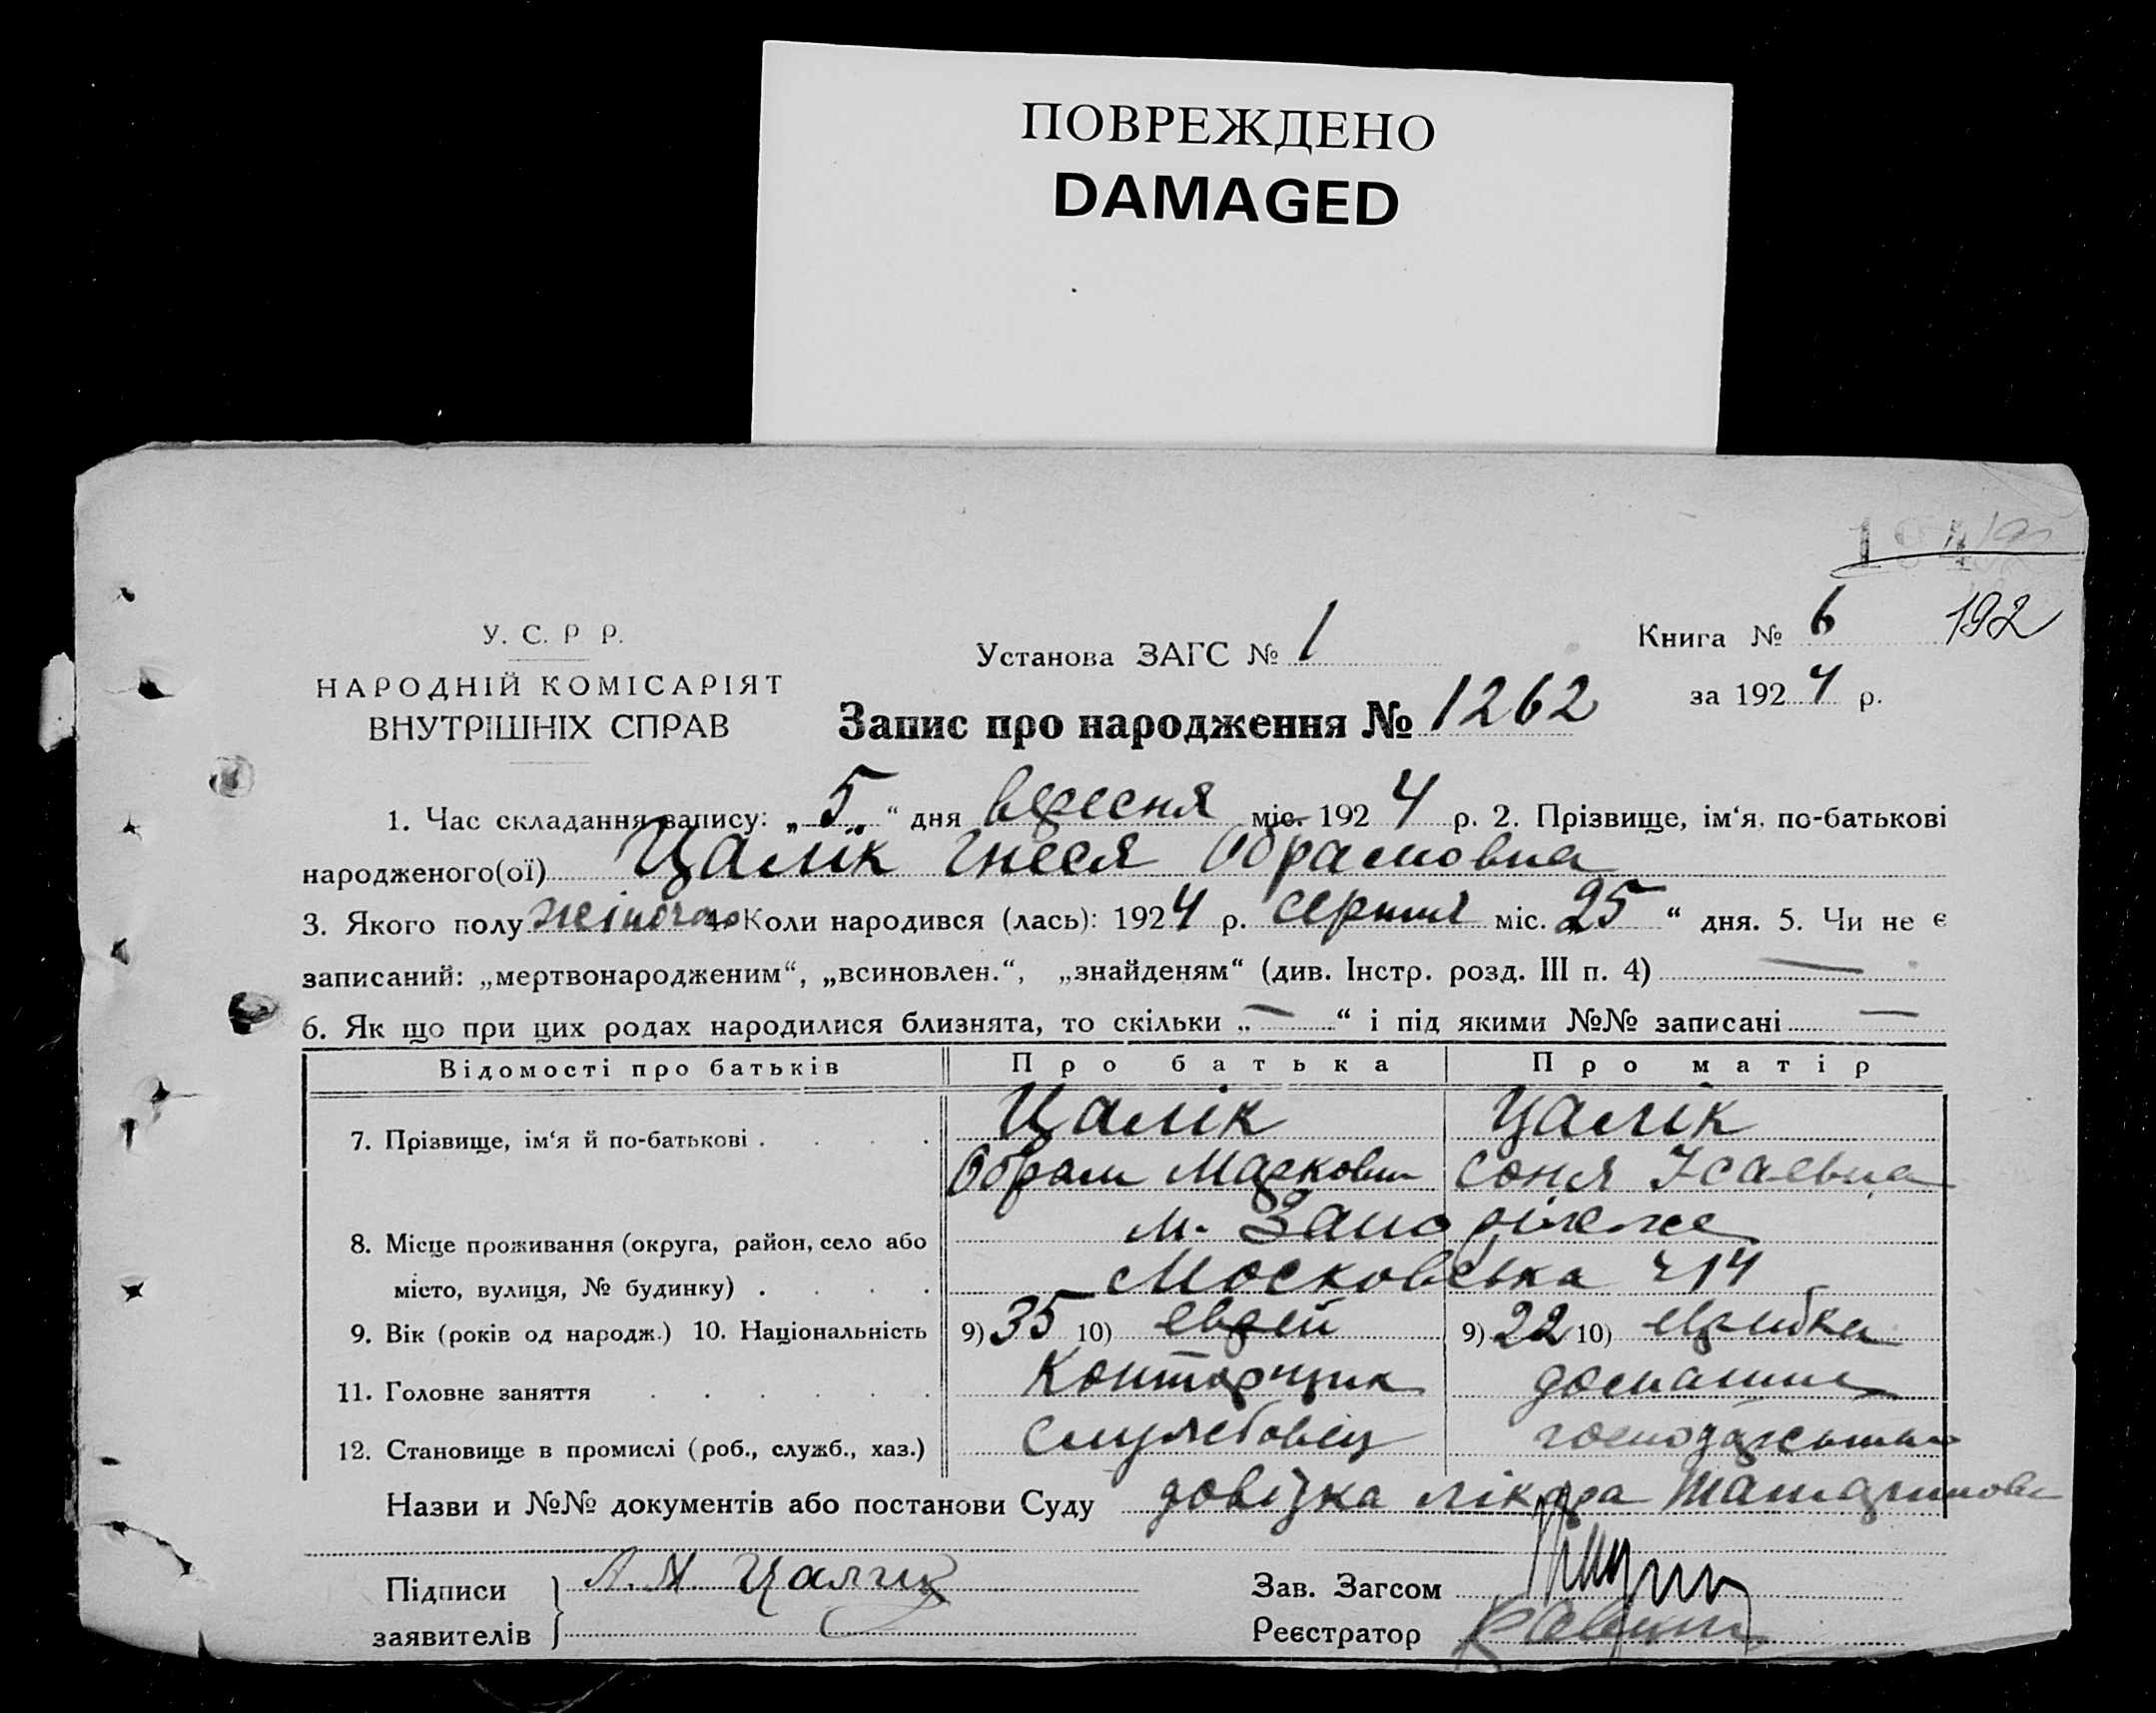 ПОВРЕЖДЕНО
DAMAGED
192
У. С. Р. Р.
НАРОДНІЙ КОМІСАРІЯТ
ВНУТРІШНІХ СПРАВ
Установа ЗАГС № 1
Книга № 6
за 1924 р.
Запис про народження № 1262
1. Час складання запису: „5“ дня вересня міс. 1924 р. 2. Прізвище, ім‘я, по-батькові
народженого(ої) Цалік Гнеся Абрамовна
3. Якого полу жіночая 4. Коли народився (лась): 1924 р. серпня міс. 25 “ дня. 5. Чи не є
записаний: „мертвонародженим“, „всиновлен.“, „знайденям“ (див. Інстр. розд. III п. 4) —
6. Як що при цих родах народилися близнята, то скільки „—“ і під якими №№ записані —
Відомості про батьків Про батька Про матір
7. Прізвище, ім‘я й по-батькові . . . . Цалік Цалік
Абрам Маркович Соня Ісаевна
8. Місце проживання (округа, район, село або м. Запоріжже
місто, вулиця, № будинку) . . . . Московська ч 14
9. Вік (років од народж.) 10. Національність 9) 35 10) еврей 9) 22 10) еврейка
11. Головне заняття . . . . . . Конторщик домашнє
12. Становище в промислі (роб., служб., хаз.) службовец господарство
Назви и №№ документів або постанови Суду довідка лікара
Підписи
заявителів
А. М. Цалик
Зав. Загсом
Реєстратор